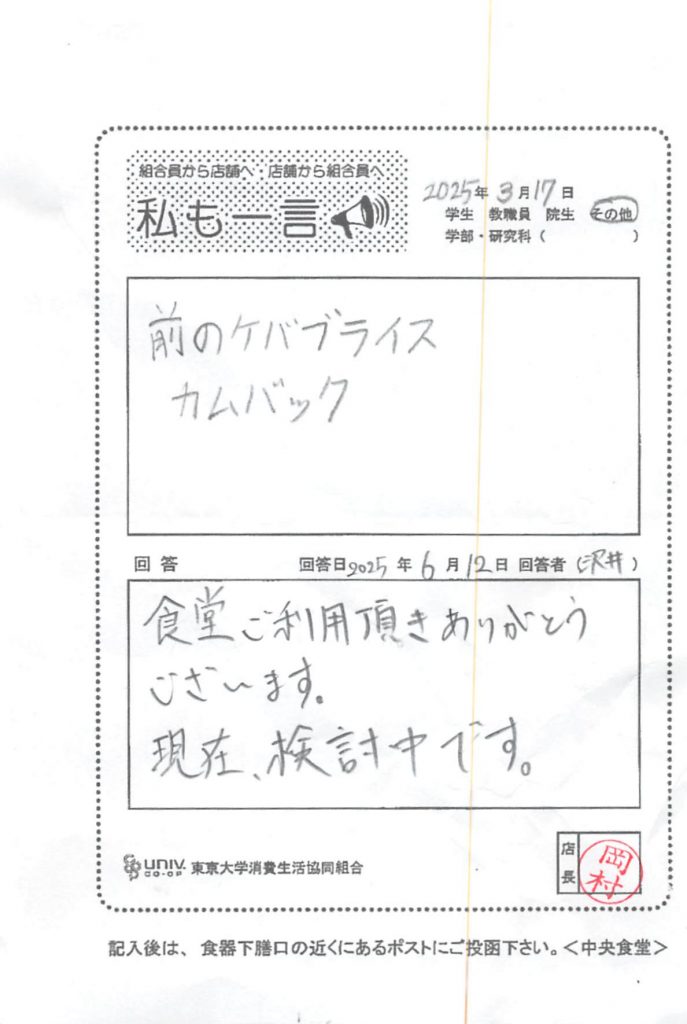 組合員から店舗へ・店舗から組合員へ
私も一言
2025年 3月17日
学生 教職員 院生 その他
学部・研究科 ( )
前のケバブライス
カムバック
回答 回答日2025年6月12日 回答者 (沢井)
食堂ご利用頂きありがとう
ございます。
現在、検討中です。
UNIV. CO-OP 東京大学消費生活協同組合
店長 岡村
記入後は、食器下膳口の近くにあるポストにご投函下さい。<中央食堂>